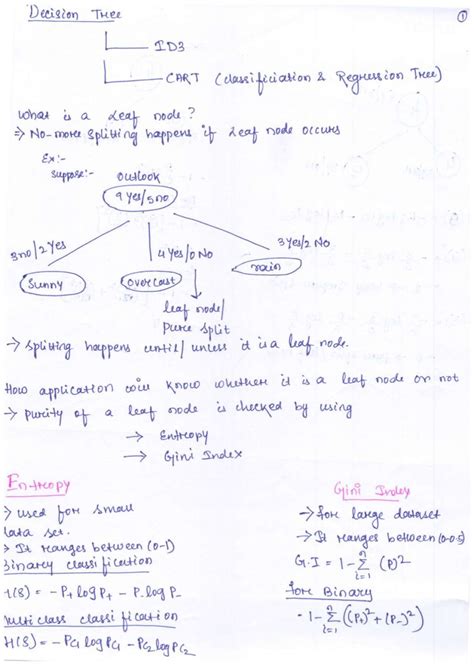 Decision Tree
①
ID3
CART (Classificiation & Regression Tree)
What is a Leaf node?
⇒ No-more splitting happens if Leaf node occurs
Ex:-
Suppose:- Outlook
9 Yes/5 no
3no/2 Yes
4 Yes/0 No
3 Yes/2 No
Sunny
Overcast
rain
leaf node/
Pure Split
→ Splitting happens until/unless it is a leaf node.
How application will know whether it is a leaf node or not
→ purity of a leaf node is checked by using
→ Entropy
→ Gini Index
Entropy
→ used for small
data set.
→ It ranges between (0-1)
Binary classification
H(S) = -P+ log P+ - P- log P-
Multiclass classification
H(S) = -PC1 log PC1 - PC2 log PC2
Gini Index
→ for large dataset
→ It ranges between (0-0.5)
G.I = 1 - Σ (P)²
n
i=1
for Binary
= 1 - Σ ((P+)² + (P-)²)
n
i=1